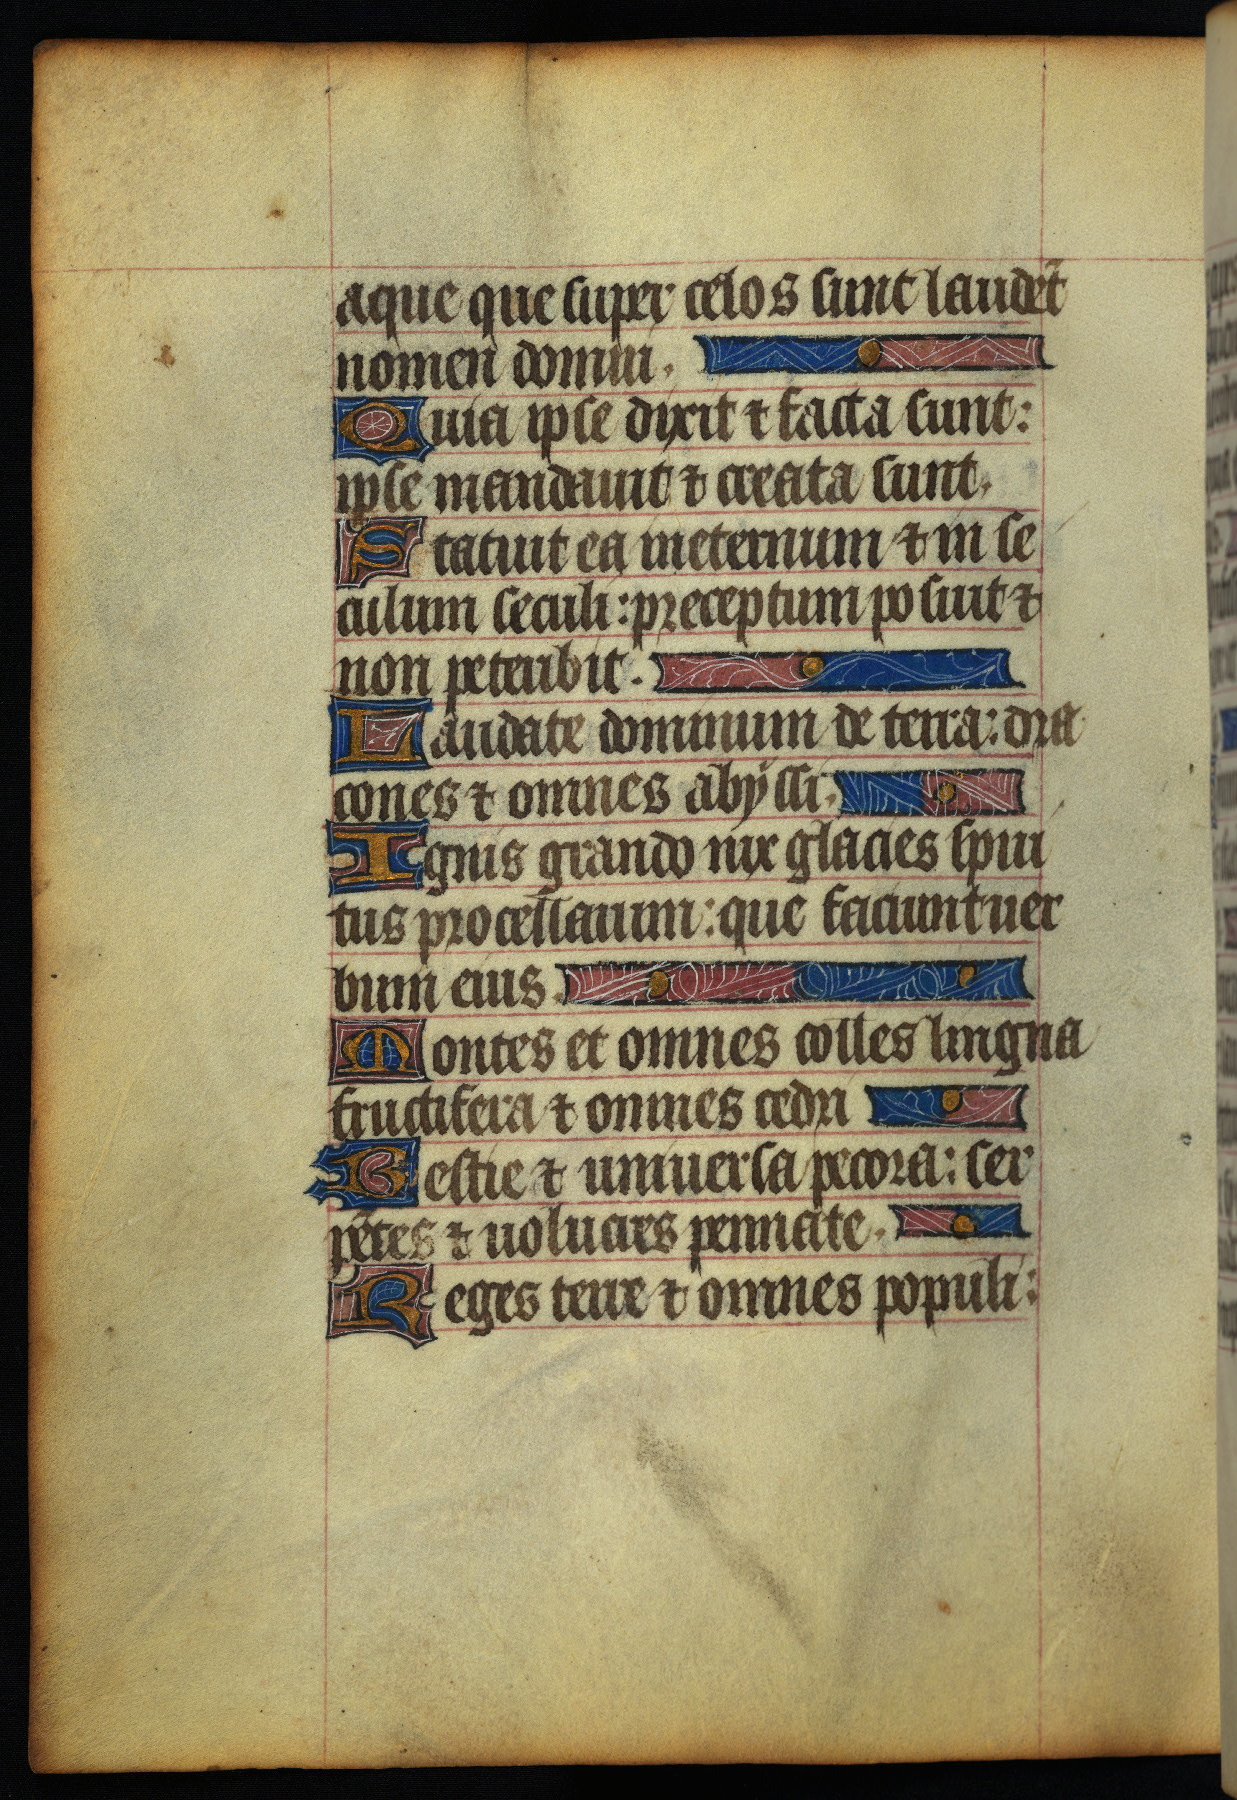 aque que super celos sunt laudēt
nomen domini.
Quia ipse dixit ⁊ facta sunt:
ipse mandauit ⁊ creata sunt.
Statuit ea ineternum ⁊ in se
culum seculi: preceptum posuit ⁊
non peteribit.
Laudate dominum de terra: dra
cones ⁊ omnes abyssi.
Ignis grando nix glacies spiri
tus procellarum: que faciunt uer
bum eius.
Montes et omnes colles lingna
fructifera ⁊ omnes cedri
Bestie ⁊ uniuersa pecora: ser
pētes ⁊ uolucres pennate.
Reges terre ⁊ omnes populi: